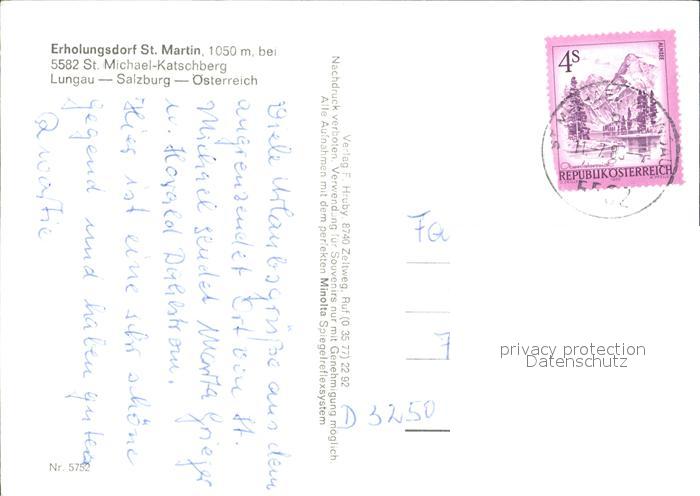 Erholungsdorf St. Martin, 1050 m, bei
5582 St. Michael-Katschberg
Lungau — Salzburg — Österreich
Viele Urlaubsgrüße aus dem
angrenzenden Ort von St.
Michael sendet Marta Grieger
u. Harald Dahlstrom.
Hier ist eine sehr schöne
Gegend und haben gutes
Quartier
Nr. 5752
Verlag F. Hruby, 8740 Zeltweg, Ruf (0 35 77) 22 92
Nachdruck verboten. Verwendung für Souvenirs nur mit Genehmigung möglich.
Alle Aufnahmen mit dem perfekten Minolta Spiegelreflexsystem
4S
ALMSEE
REPUBLIK ÖSTERREICH
5582
Fa
D 3250
privacy protection
Datenschutz